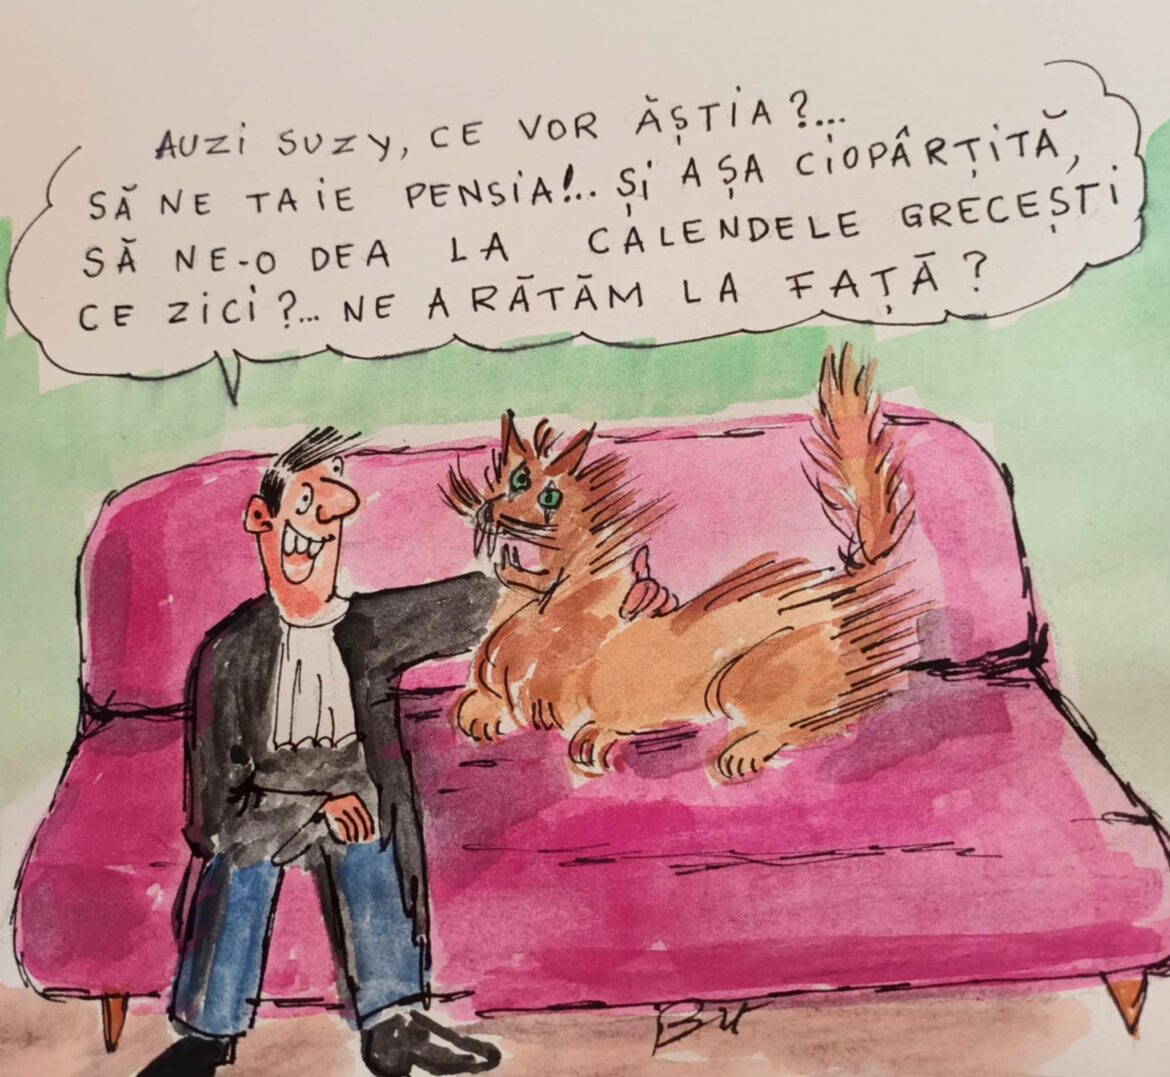 AUZI SUZY, CE VOR ĂȘTIA?...
SĂ NE TAIE PENSIA!.. ȘI AȘA CIOPÂRȚITĂ,
SĂ NE-O DEA LA CALENDELE GRECEȘTI
CE ZICI?... NE ARĂTĂM LA FAȚĂ?